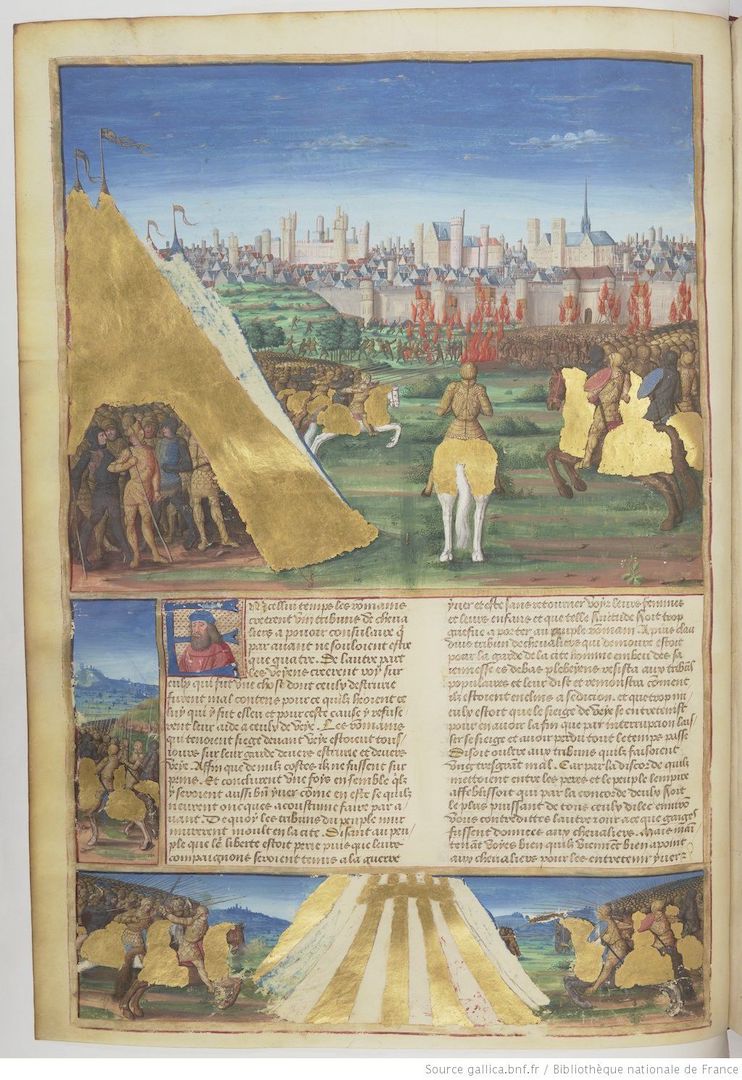 En cellui temps les romains
creerent vin tribuns de cheva
liers a povoir consulaire q̃
par avant ne souloient estre
que quatre. De lautre part
les veyens creerent roy sur
eulx qui fut une chose dont ceulx destrurie
furent mal contens pour ce quilz heoient ce
luy qui y fut esleu et pour ceste cause y refuse
rent leur aide a ceulx de veye. Les romains
qui tenoient siege devant veye estoient tous
iours sur leur garde devers estrurie et devers
veye. Affin que de nulz costez ilz ne fussent sur
prins. Et conclurent une foys ensemble qlz
y seroient aussi bien yver comme en este ce quilz
neurent oncques acoustume faire par a
vant. De quoy les tribuns du peuple mur
murerent moult en la cite. Disant au peu
ple que sa liberte estoit perie puis que leurs
compaignons seroient tenus a la guerre
yver et este sans retourner veoir leurs femmes
et leurs enfans et que telle servitude estoit trop
griefve a porter au peuple romain. Apius clau
dius tribun de chevaliers qui demoure estoit
pour la garde de la cite homme embeu des sa
ieunesse es debas plebeyens resista aux tribũs
populaires et leur dist et remonstra cõment
ilz estoient enclins a sedicion. et que trop mi
eulx estoit que le siege de veye sentretenist
pour en avoir la fin que par interrupcion lais
ser le siege et avoir perdu tout le temps passe
Disoit oultre aux tribuns quilz faisoient
ung tresgrant mal. Car par la discorde quilz
mettoient entre les peres et le peuple lempire
affeblissoit qui par la concorde deulx estoit
le plus puissant de tous ceulx dilec environ
vous contredittes lautre iour a ce que gaiges
fussent donnees aux chevaliers. Mais main
tenant voyes bien quilz viennent bien a point
aux chevaliers pour les entretenir yver
Source gallica.bnf.fr / Bibliothèque nationale de France